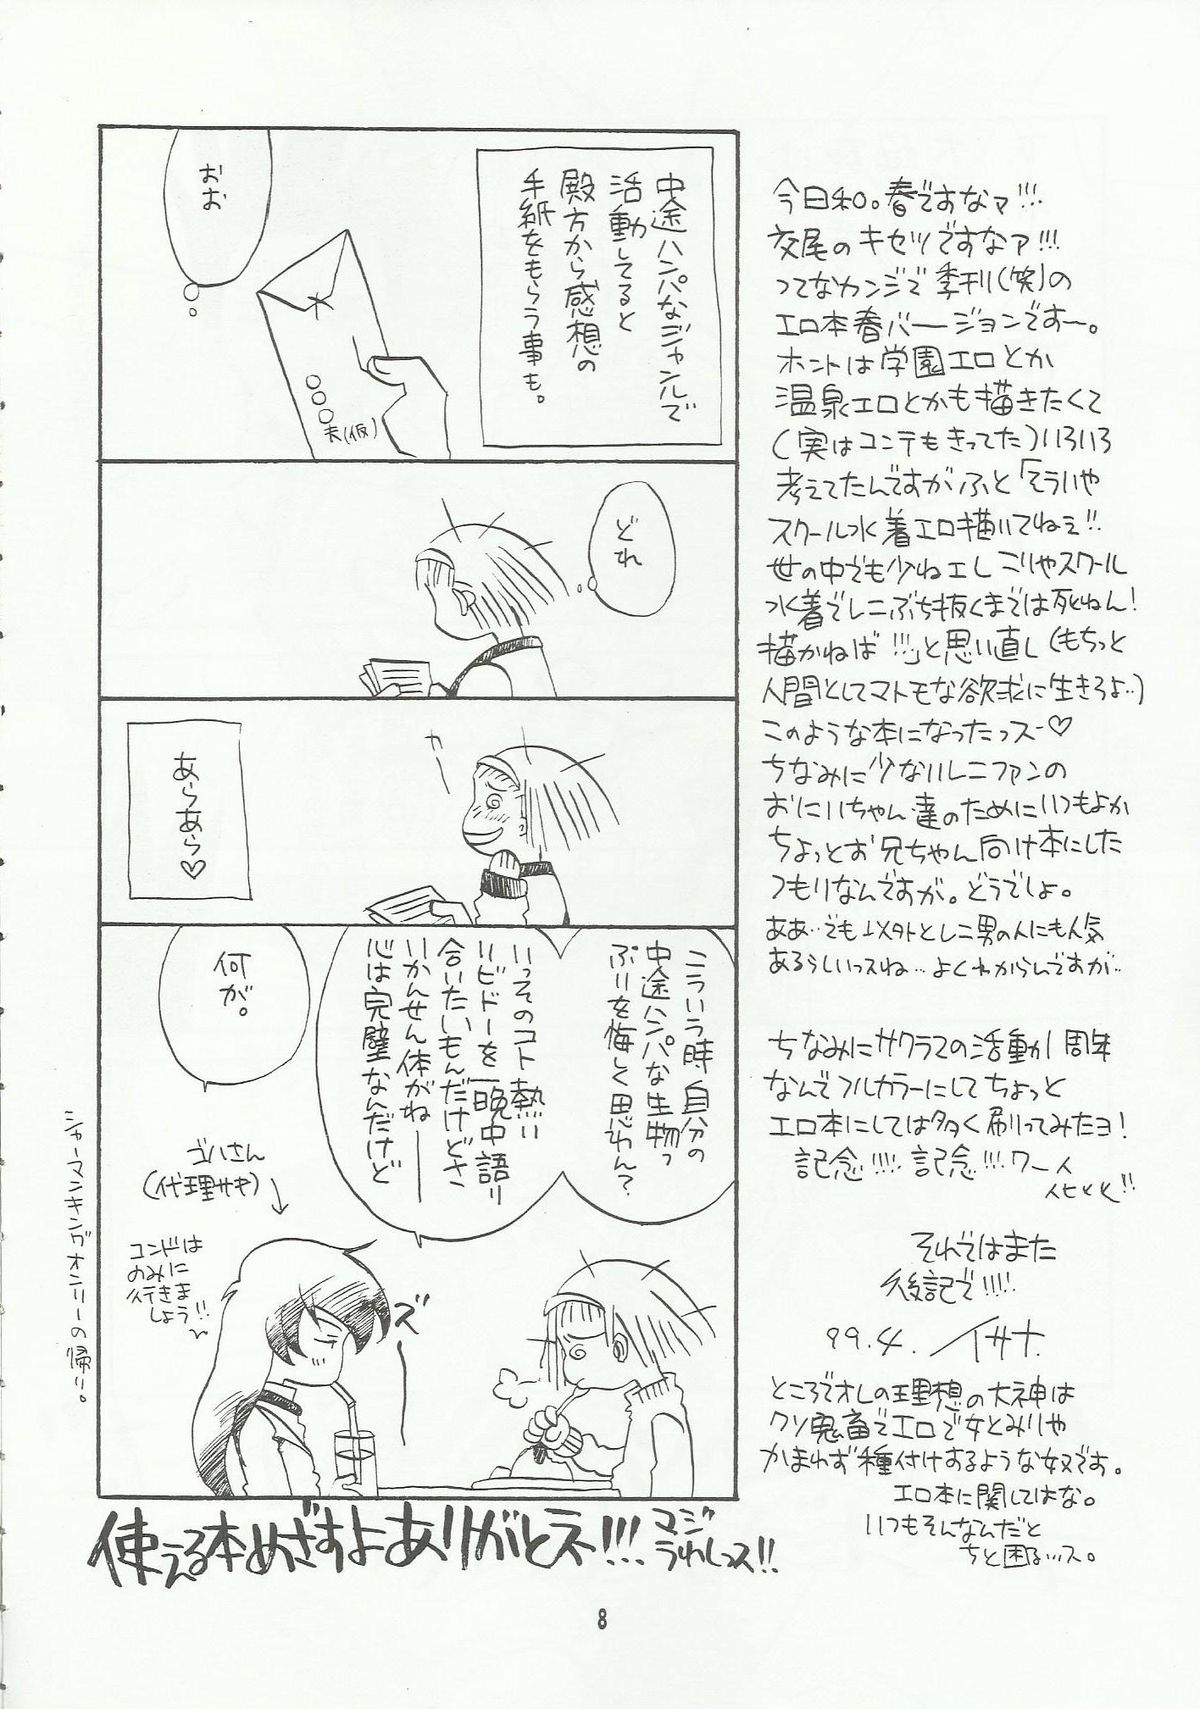 今日和。春ですなァ!!!
交尾のキセツですなァ!!!
ってなカンジで季刊(笑)の
エロ本春バージョンですー。
ホントは学園エロとか
温泉エロとかも描きたくて
(実はコンテもきってた)いろいろ
考えてたんですがふと「そういや
スクール水着エロ描いてねぇ!!
世の中でも少ねェし こりゃスクール
水着でレニぶち抜くまでは死ねん!
描かねば!!!」と思い直し(もちっと
人間としてマトモな欲求に生きろよ‥)
このような本になったっスー♡
ちなみに少ないレニファンの
おにいちゃん達のためにいつもよか
ちょっとお兄ちゃん向け本にした
つもりなんですが。どうでしょ。
ああ‥でも以外とレニ男の人にも人気
あるらしいっスね…よくわからんですが‥
ちなみにサクラでの活動が1周年
なんでフルカラーにしてちょっと
エロ本にしては多く刷ってみたヨ!
記念!!!! 記念!!! ワーイ
それではまた
後記で!!!!
99.4. イサナ
ところでオレの理想の大神は
クソ鬼畜でエロで女とみりゃ
かまわず種付けするような奴です。
エロ本に関してはな。
いつもそんなんだと
ちと困る…ス。
中途ハンパなジャンルで
活動してると
殿方から感想の
手紙をもらう事も。
おお
○○○夫(仮)
どれ
カー
あらあら♡
こういう時自分の
中途ハンパな生物っ
ぷりを悔しく思わん?
いっそのコト熱い
リビドーを一晩中語り
合いたいもんだけどさ
いかんせん体がねー
心は完璧なんだけど
何が。
ゴハさん
(代理サキ)
コンドは
のみに
行きま
しょう!!
ズー
シャーマンキングオンリーの帰り。
使える本めざすよありがとネ!!!
マジ
うれしっス!!
8